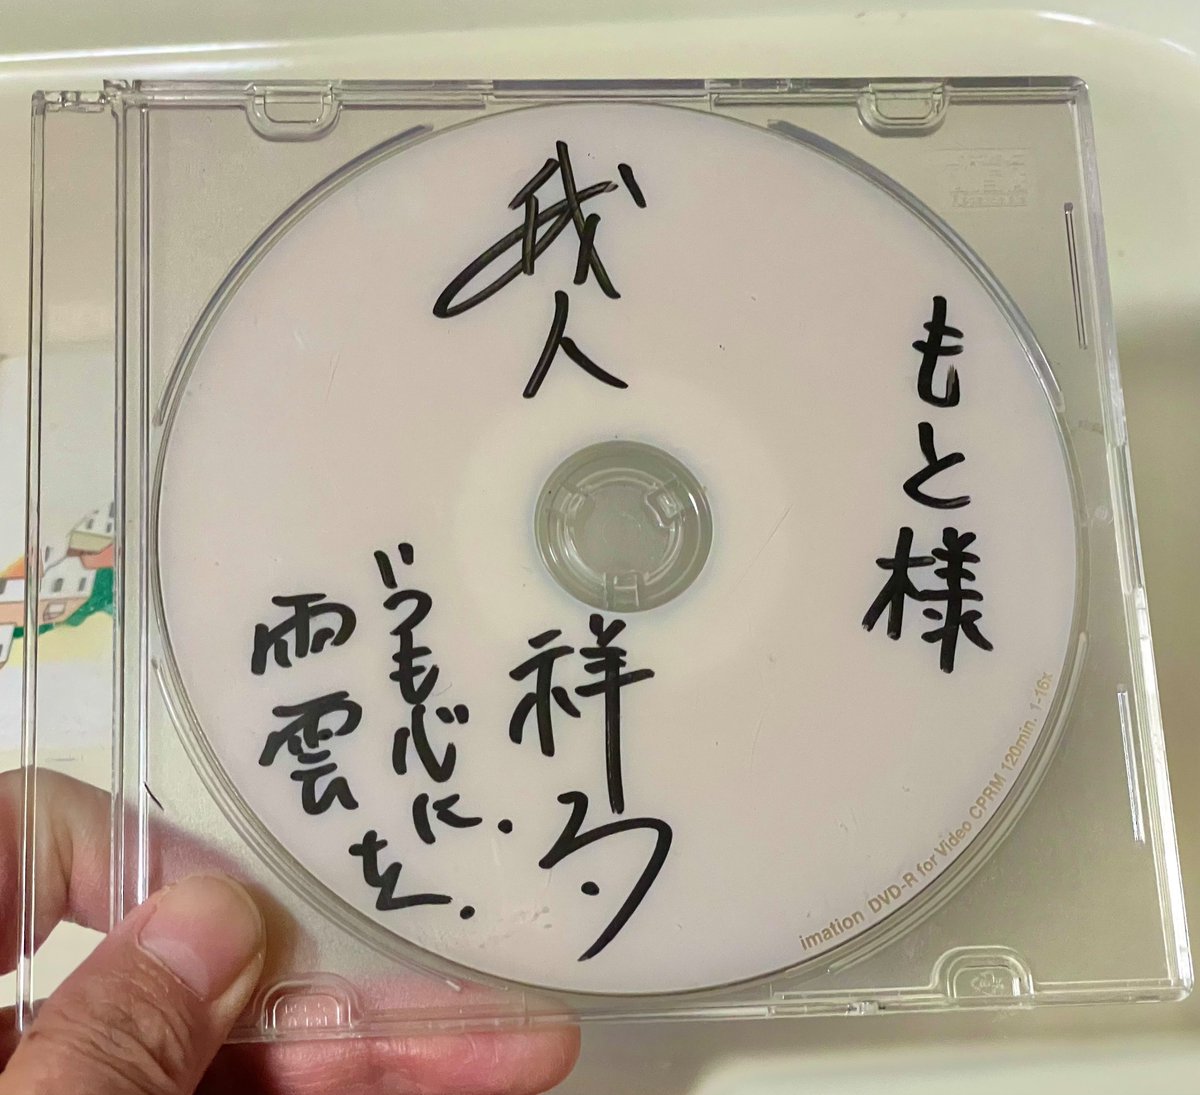 もと様
我人
祥
いつも心に.
雨雲
を.
imation DVD-R for Video CPRM 120min. 1-16x